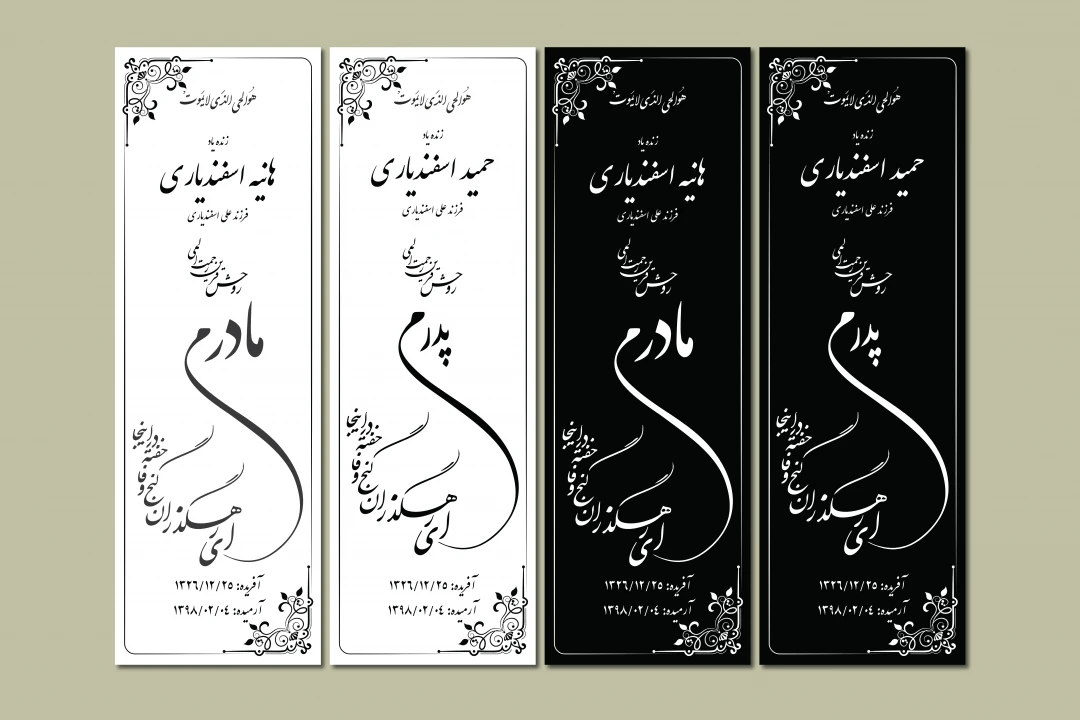 هوالحی الذی لایموت
زنده یاد
حمید اسفندیاری
فرزند علی اسفندیاری
روحش قرین رحمت الهی
پدرم
ای رهگذران گنج وفا خفته در اینجا
آفریده: ۱۳۲۶/۱۲/۲۵
آرمیده: ۱۳۹۸/۰۲/۰۴
هوالحی الذی لایموت
زنده یاد
هانیه اسفندیاری
فرزند علی اسفندیاری
روحش قرین رحمت الهی
مادرم
ای رهگذران گنج وفا خفته در اینجا
آفریده: ۱۳۲۶/۱۲/۲۵
آرمیده: ۱۳۹۸/۰۲/۰۴
هوالحی الذی لایموت
زنده یاد
حمید اسفندیاری
فرزند علی اسفندیاری
روحش قرین رحمت الهی
پدرم
ای رهگذران گنج وفا خفته در اینجا
آفریده: ۱۳۲۶/۱۲/۲۵
آرمیده: ۱۳۹۸/۰۲/۰۴
هوالحی الذی لایموت
زنده یاد
هانیه اسفندیاری
فرزند علی اسفندیاری
روحش قرین رحمت الهی
مادرم
ای رهگذران گنج وفا خفته در اینجا
آفریده: ۱۳۲۶/۱۲/۲۵
آرمیده: ۱۳۹۸/۰۲/۰۴